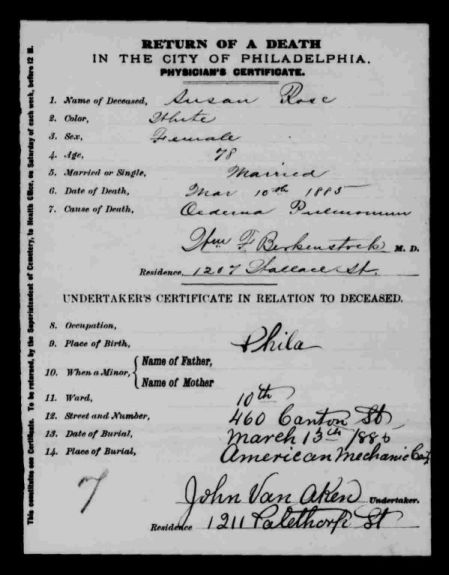 RETURN OF A DEATH
IN THE CITY OF PHILADELPHIA.
PHYSICIAN'S CERTIFICATE.
1. Name of Deceased, Susan Rose
2. Color, White
3. Sex, Female
4. Age, 78
5. Married or Single, Married
6. Date of Death, Mar 10th 1885
7. Cause of Death, Oedema Pulmonum
Wm F Berkenstock M. D.
Residence, 1207 Wallace St.
UNDERTAKER'S CERTIFICATE IN RELATION TO DECEASED.
8. Occupation,
9. Place of Birth, Phila
10. When a Minor, { Name of Father,
Name of Mother
11. Ward, 10th
12. Street and Number, 460 Canton St
13. Date of Burial, March 13th 1885
14. Place of Burial, American Mechanic Cem
7
John Van Aken Undertaker.
Residence 1211 Palethorp St
This constitutes one Certificate. To be returned, by the Superintendent of Cemetery, to Health Office, on Saturday of each week, before 12 M.